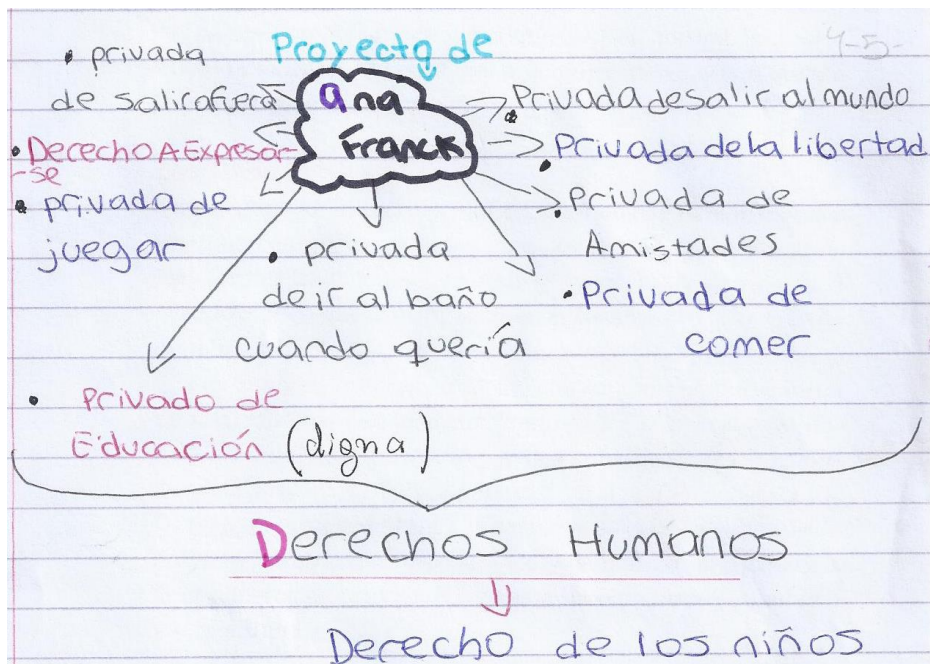 Proyecto de
4-5-
Ana
Franck
• privada
de salir afuera
• Derecho A Expresar-
-se
• privada de
juegar
• Privado de
Educación (digna)
• privada
de ir al baño
cuando quería
• Privada de salir al mundo
• Privada de la libertad
• Privada de
Amistades
• Privada de
comer
Derechos Humanos
Derecho de los niños